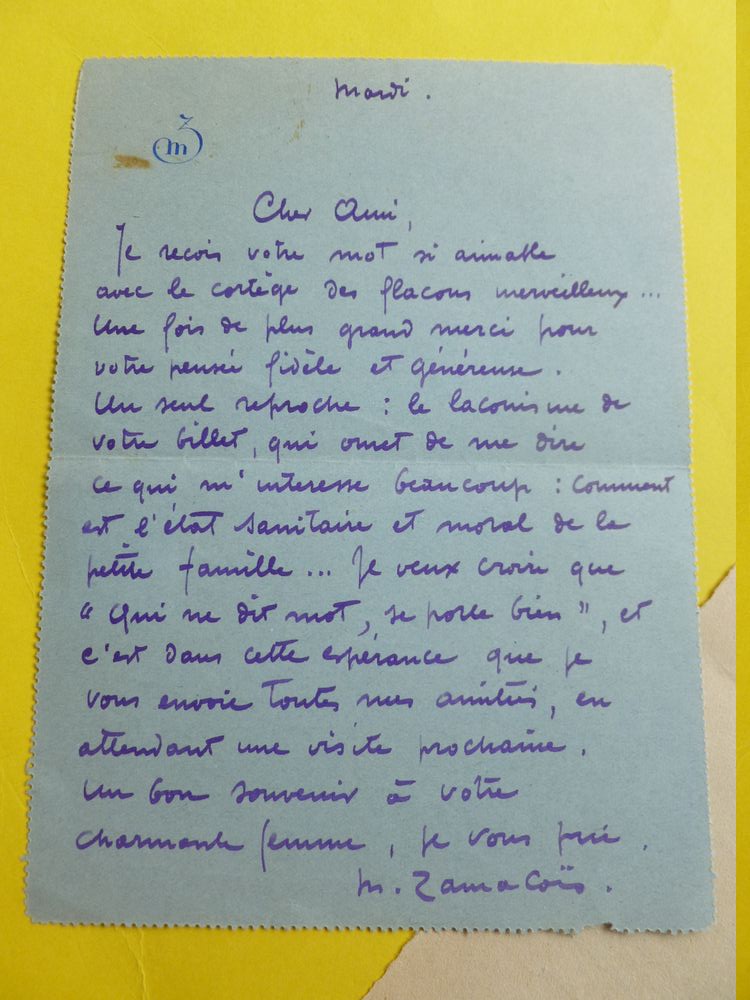 Mardi.
mz
Cher Ami,
Je reçois votre mot si aimable
avec le cortège des flacons merveilleux...
Une fois de plus grand merci pour
votre pensée fidèle et généreuse.
Un seul reproche : le laconisme de
votre billet, qui omet de me dire
ce qui m'interesse beaucoup : comment
est l'état sanitaire et moral de la
petite famille... Je veux croire que
"Qui ne dit mot, se porte bien", et
c'est dans cette espérance que je
vous envoie toutes mes amitiés, en
attendant une visite prochaine.
Un bon souvenir à votre
charmante femme, je vous prie.
M. Zamacoïs.